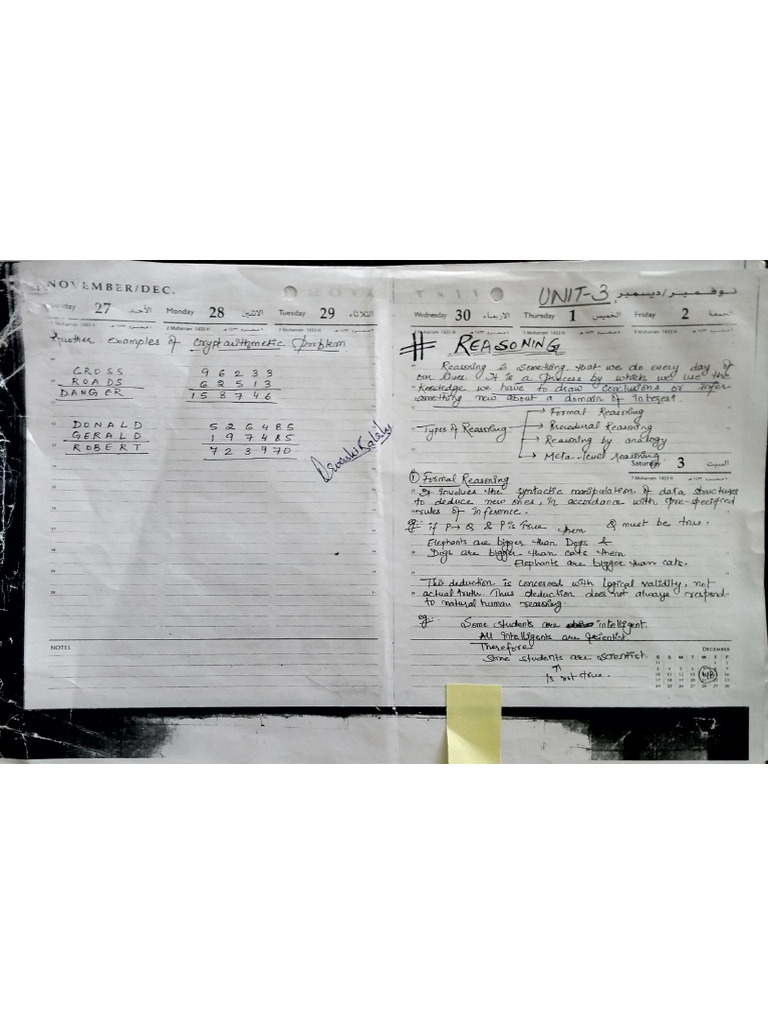 NOVEMBER/DEC.
27 الأحد Monday 28 الاثنين Tuesday 29 الثلاثاء
1 Muharram 1433 H 2 Muharram 1433 H 3 Muharram 1433 H
Another examples of Cryptarithmetic Problem
CROSS 9 6 2 3 3
ROADS 6 2 5 1 3
DANGER 1 5 8 7 4 6
DONALD 5 2 6 4 8 5
GERALD 1 9 7 4 8 5
ROBERT 7 2 3 9 7 0
NOTES
UNIT-3 نوفمبر/ديسمبر
Wednesday 30 الاربعاء Thursday 1 الخميس Friday 2 جمعة
# REASONING
Reasoning is something that we do every day of
our lives. It is a process by which we use the
knowledge we have to draw conclusions or infer
something new about a domain of interest.
Types of Reasoning → Formal Reasoning
→ Procedural Reasoning
→ Reasoning by analogy
→ Meta-level reasoning.
Saturday 3 السبت
7 Muharram 1433 H
① Formal Reasoning
It involves the syntactic manipulation of data structures
to deduce new ones, in accordance with pre-specified
rules of inference.
eg:- if P → Q & P is True then Q must be true.
Elephants are bigger than Dogs &
Dogs are bigger than cats then
Elephants are bigger than cats.
This deduction is concerned with logical validity, not
actual truth. Thus deduction does not always respond-
to natural human reasoning.
eg:- Some students are intelligent.
All intelligents are scientist.
Therefore
Some students are scientist.
↑
is not true.
DECEMBER
S S M T W T F